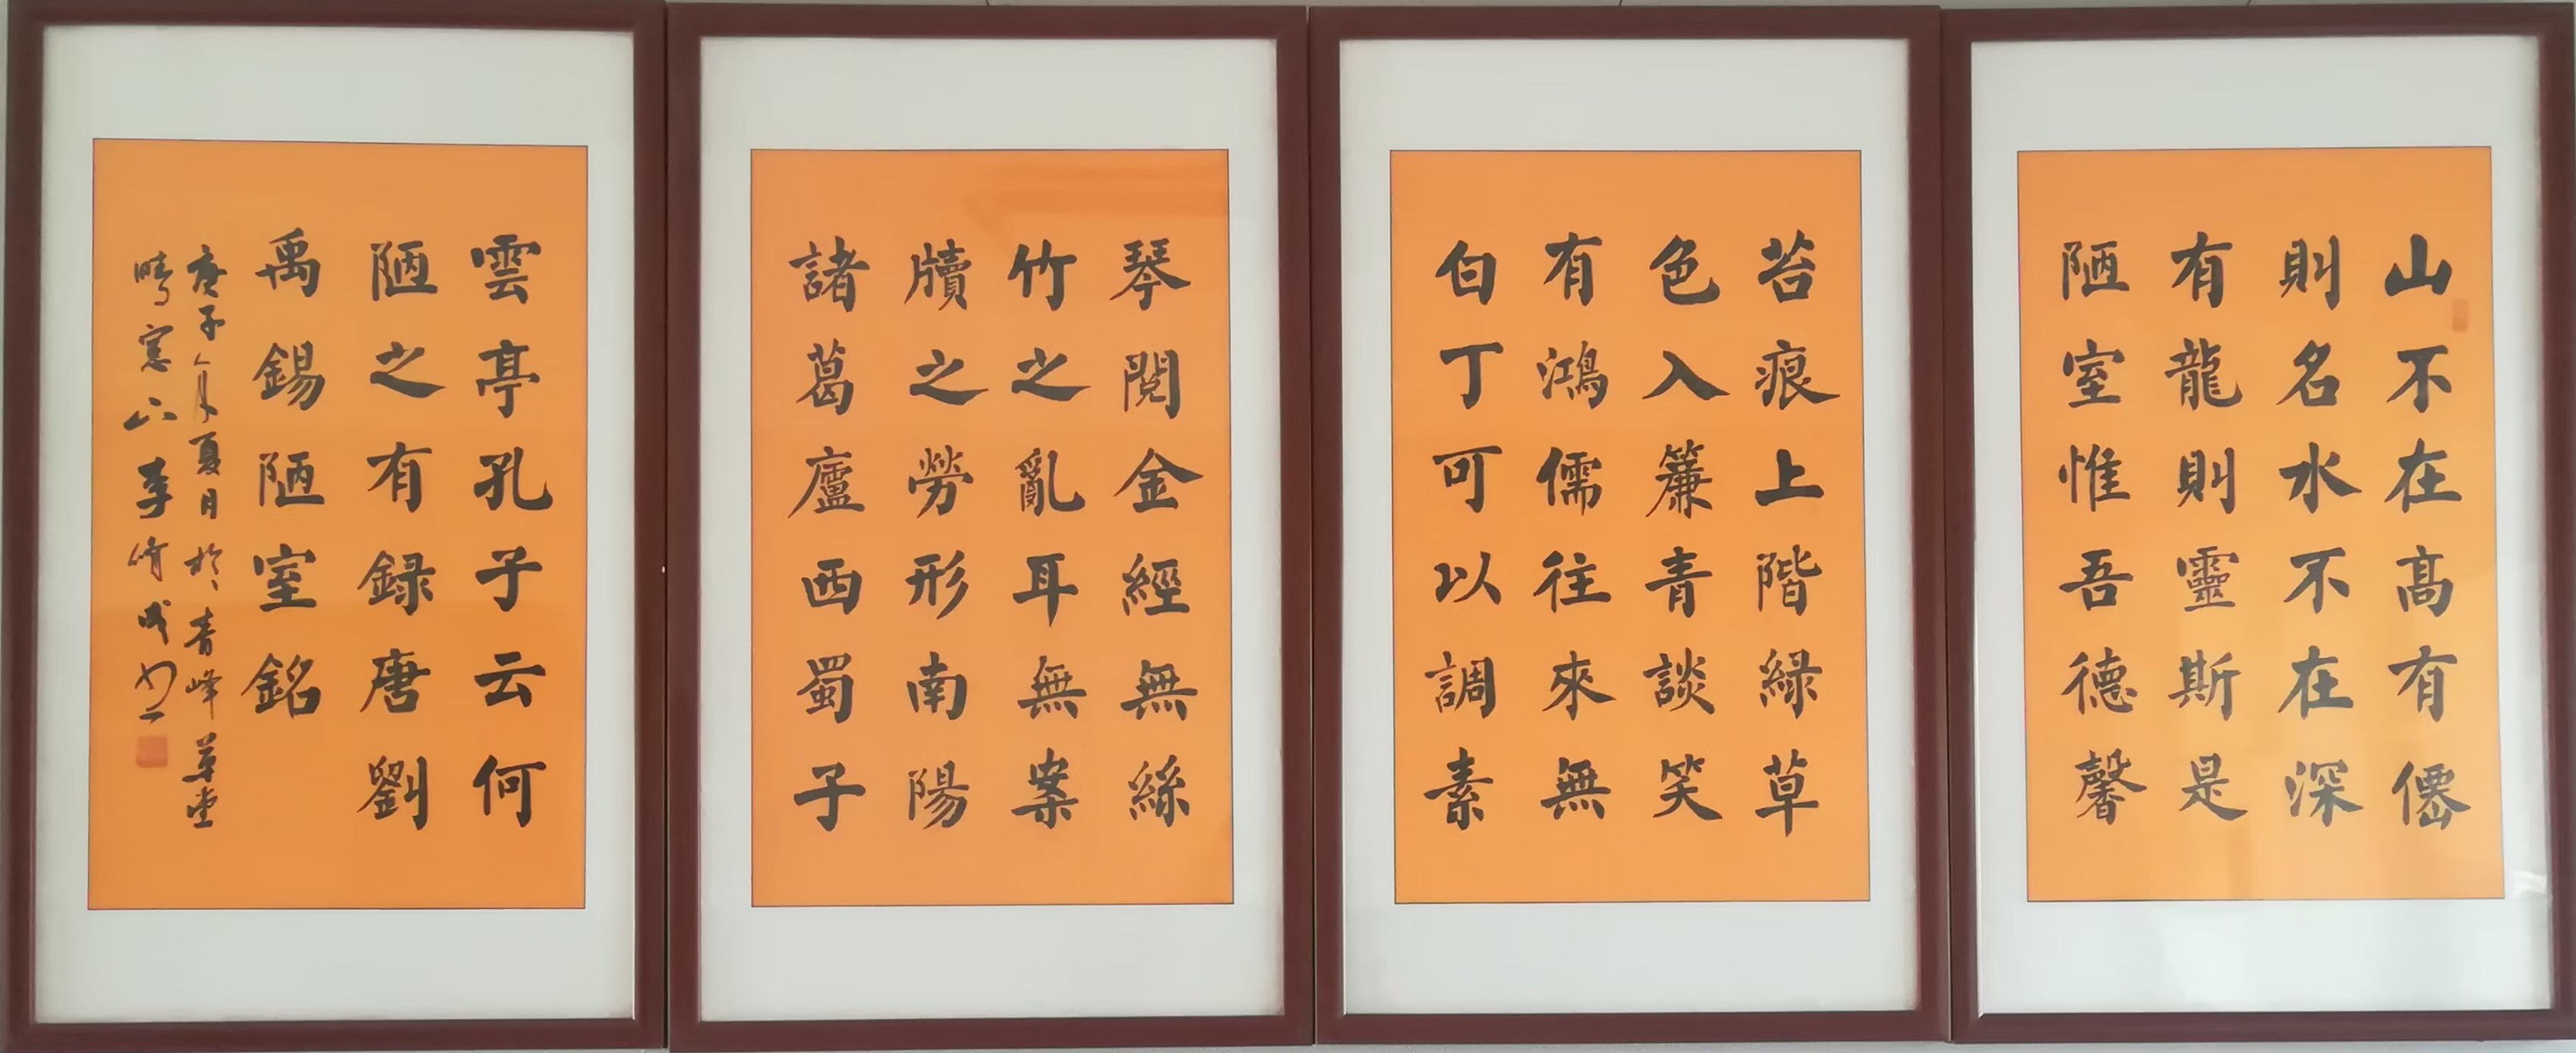 山不在高有僊
則名水不在深
有龍則靈斯是
陋室惟吾德馨
苔痕上階緑草
色入簾青談笑
有鴻儒往來無
白丁可以調素
琴閱金經無絲
竹之亂耳無案
牘之勞形南陽
諸葛廬西蜀子
雲亭孔子云何
陋之有録唐劉
禹錫陋室銘
庚子年夏月於青峰草堂
晴窓下李